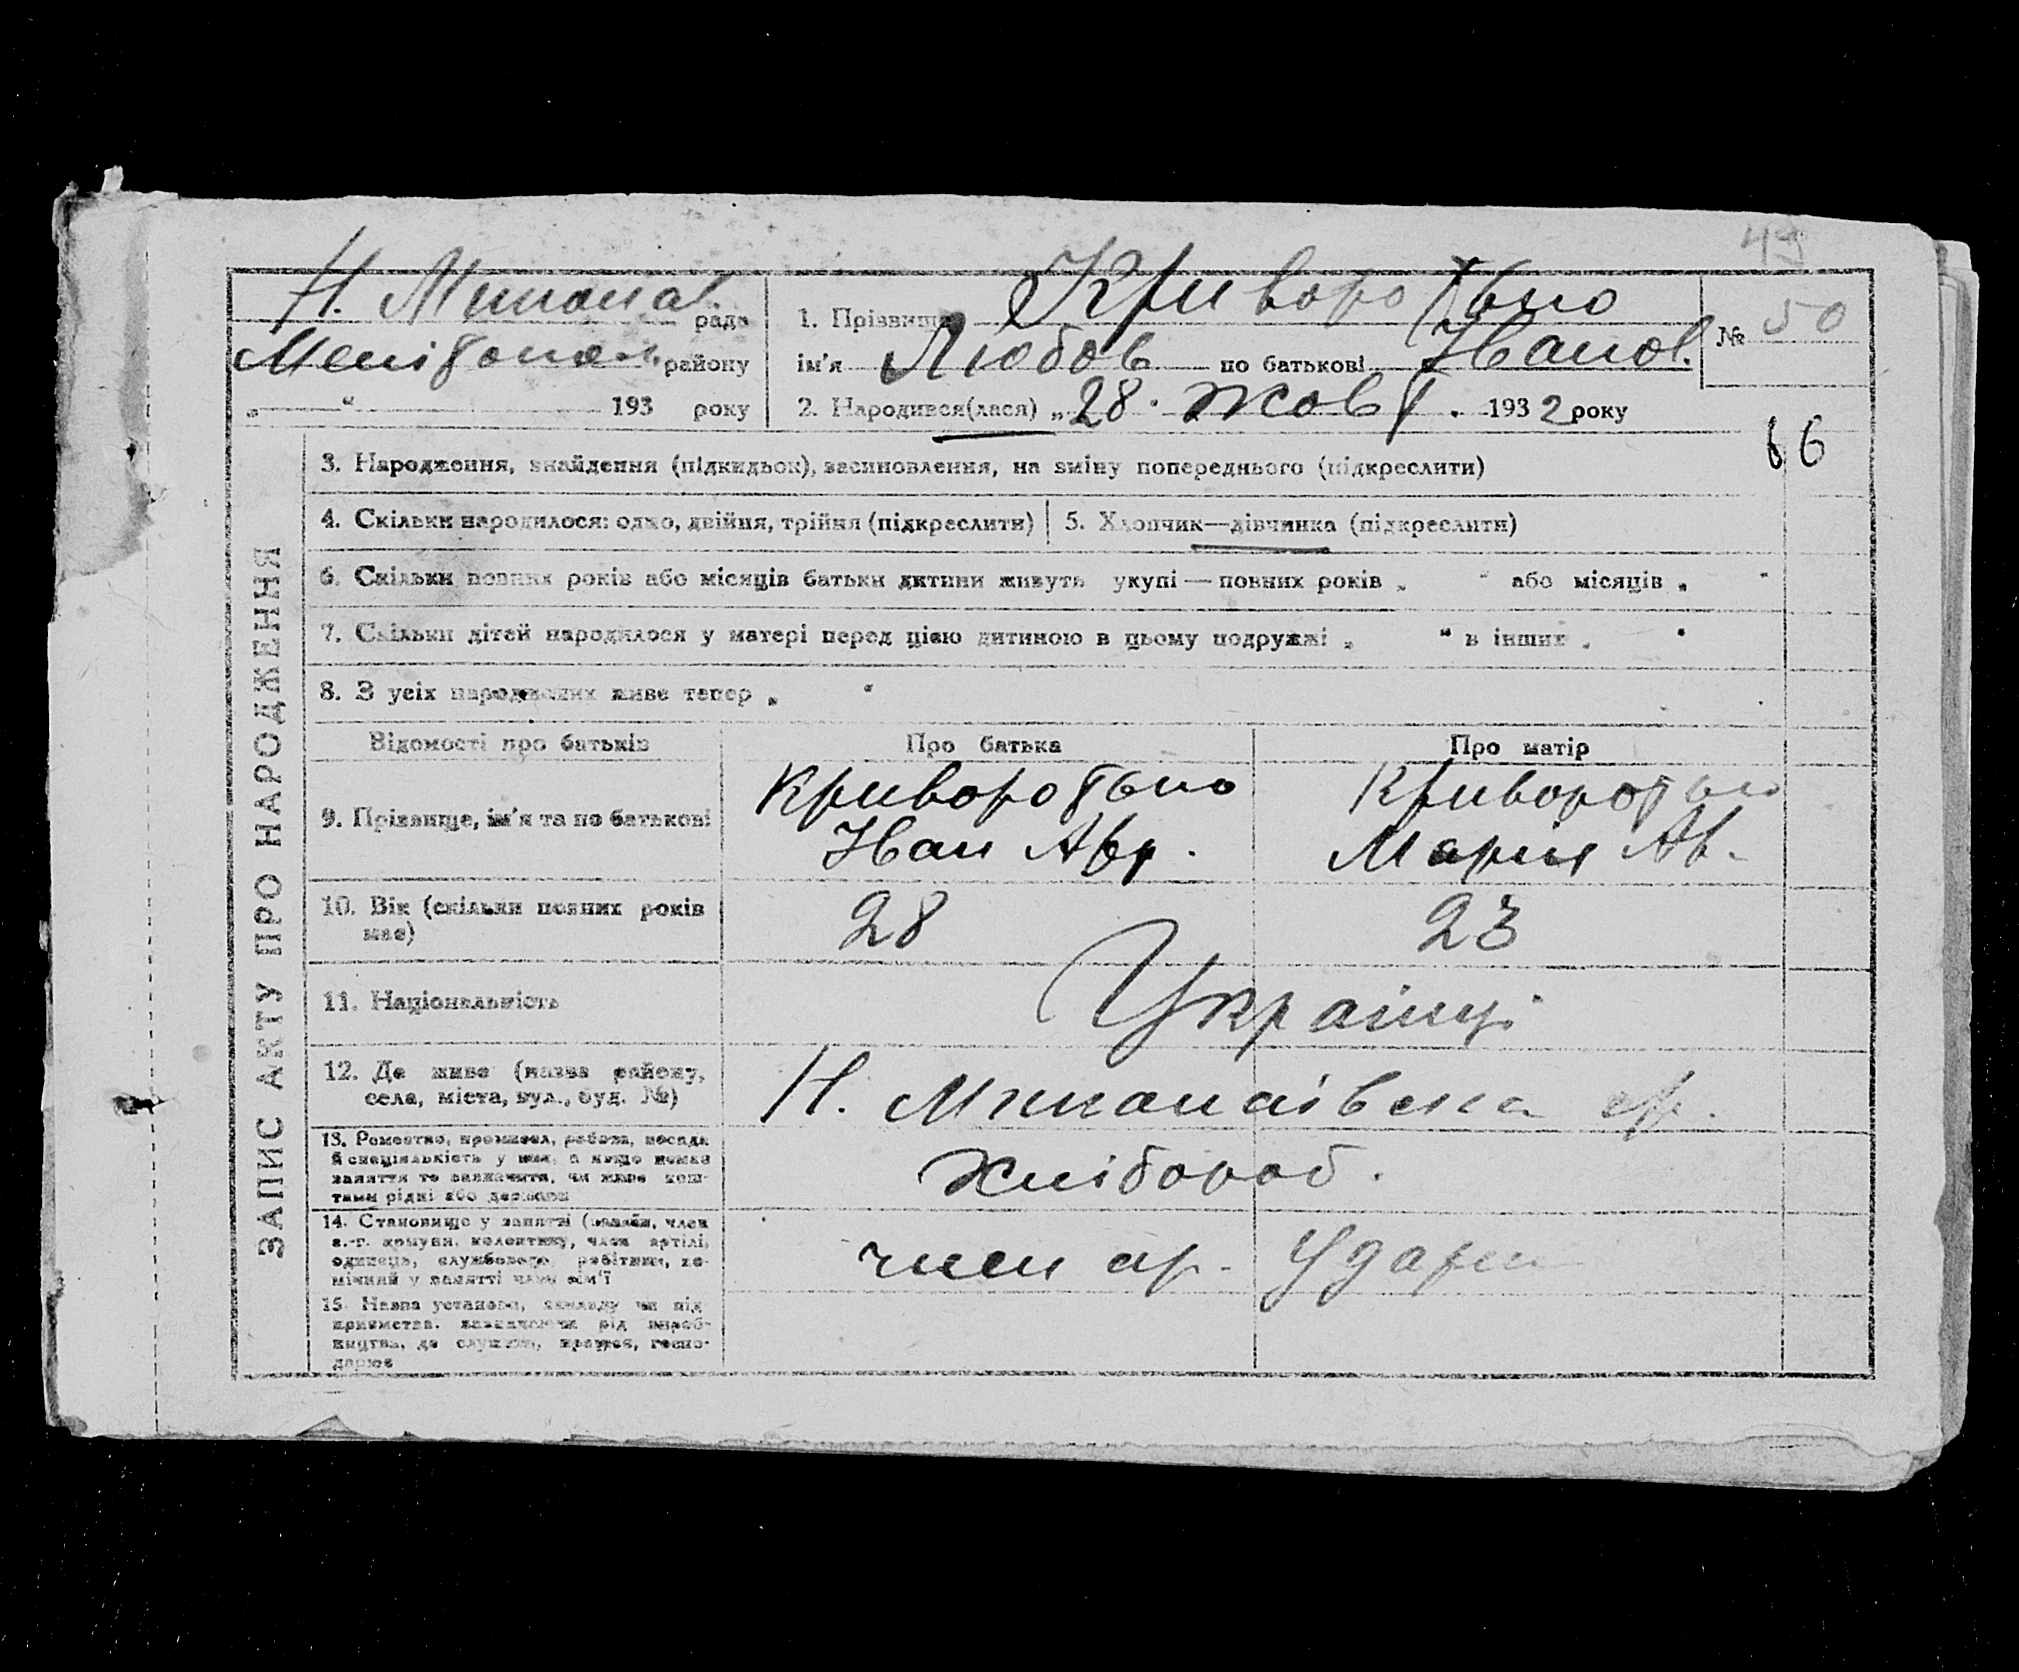 49
Н. Миколаї. рада
Мелітопол. району
„ “ 193 року
1. Прізвище Криворотько
ім'я Любов по батькові Іванов.
№ 50
2. Народився(лася) „28. Жовт. 1932 року
66
ЗАПИС АКТУ ПРО НАРОДЖЕННЯ
3. Народження, знайдення (підкидьок), засиновлення, на зміну попереднього (підкреслити)
4. Скільки народилося: одно, двійня, трійня (підкреслити) 5. Хлопчик—дівчинка (підкреслити)
6. Скільки повних років або місяців батьки дитини живуть укупі — повних років „ “ або місяців „ “
7. Скільки дітей народилося у матері перед цією дитиною в цьому подружжі „ “ в інших „ “
8. З усіх народжених живе тепер „ “
Відомості про батьків Про батька Про матір
9. Прізвище, ім'я та по батькові
Криворотько Криворотько
Іван Авр. Марія Ав.
10. Вік (скільки повних років має)
28 23
11. Національність
Українці
12. Де живе (назва району,
села, міста, вул., буд. №)
Н. Миколаївська
13. Ремество, промисел, робота, посада
й спеціяльність у них, а якщо нема
заняття то зазначити, чи живе кош-
тами рідні або держави
Хлібороб.
14. Становище у занятті (хазяїн, член
с.-г. комуни, колективу, член артілі,
одинець, службовець, робітник, по-
мічний у занятті член сім'ї
член ар. Ударн
15. Назва установи, закладу чи під-
приємства, зазначаючи рід вироб-
ництва, де служить, працює, госпо-
дарює